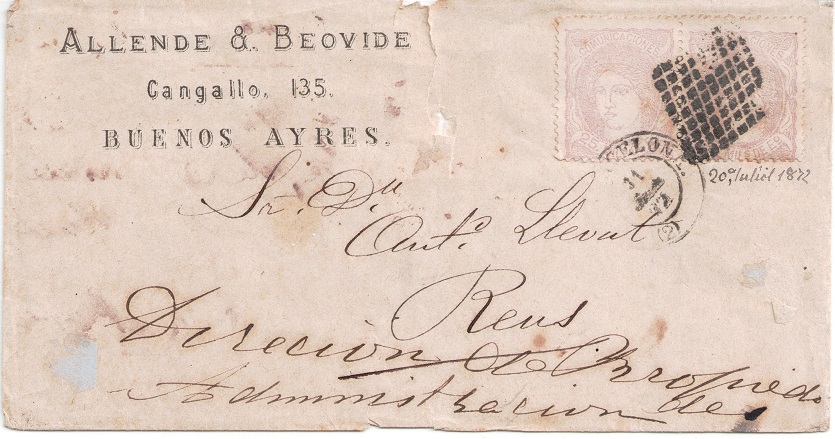 ALLENDE & BEOVIDE
Cangallo, 135.
BUENOS AYRES.
COMUNICACIONES
25
Sr. Dn
Antº Llevat
Reus
Direcion de Propieda
Administracion de